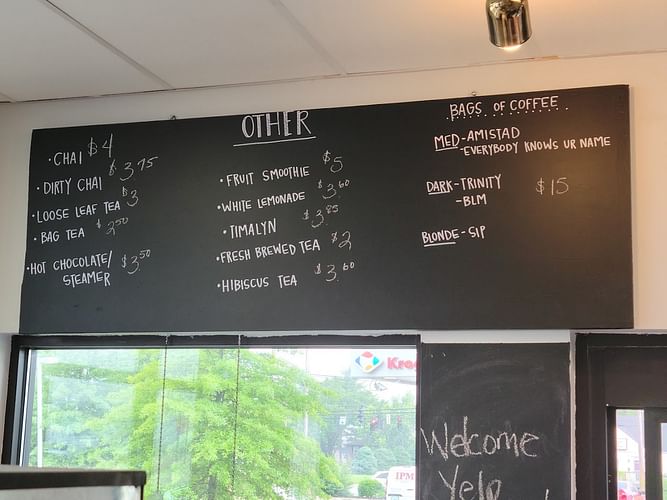 OTHER
• CHAI $4
• DIRTY CHAI $3.75
• LOOSE LEAF TEA $3
• BAG TEA $2.50
• HOT CHOCOLATE/
STEAMER $3.50
• FRUIT SMOOTHIE $5
• WHITE LEMONADE $3.60
• TIMALYN $3.85
• FRESH BREWED TEA $2
• HIBISCUS TEA $3.60
BAGS OF COFFEE
MED - AMISTAD
- EVERYBODY KNOWS UR NAME
DARK - TRINITY $15
- BLM
BLONDE - SIP
Welcome
Yelp
IPM